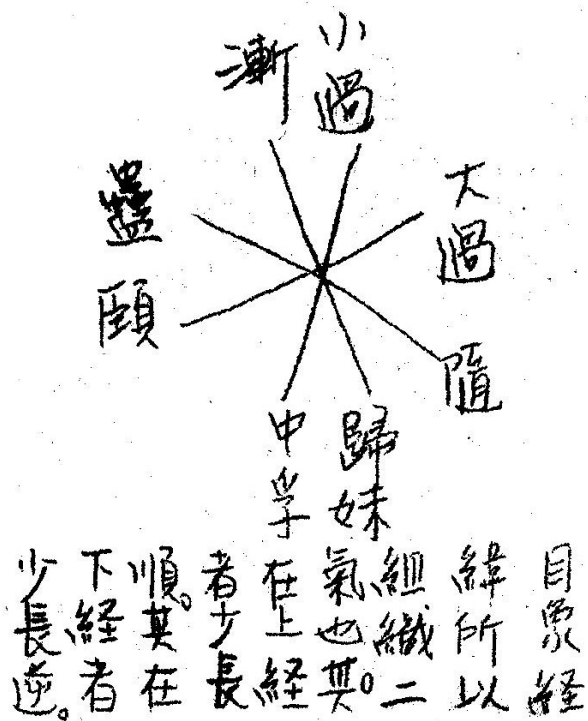 小過
漸
大過
蠱
頤
隨
歸妹
中孚
目象経
緯所以
組織二
氣也。其
在上経
者少長
順。其在
下経者
少長逆。